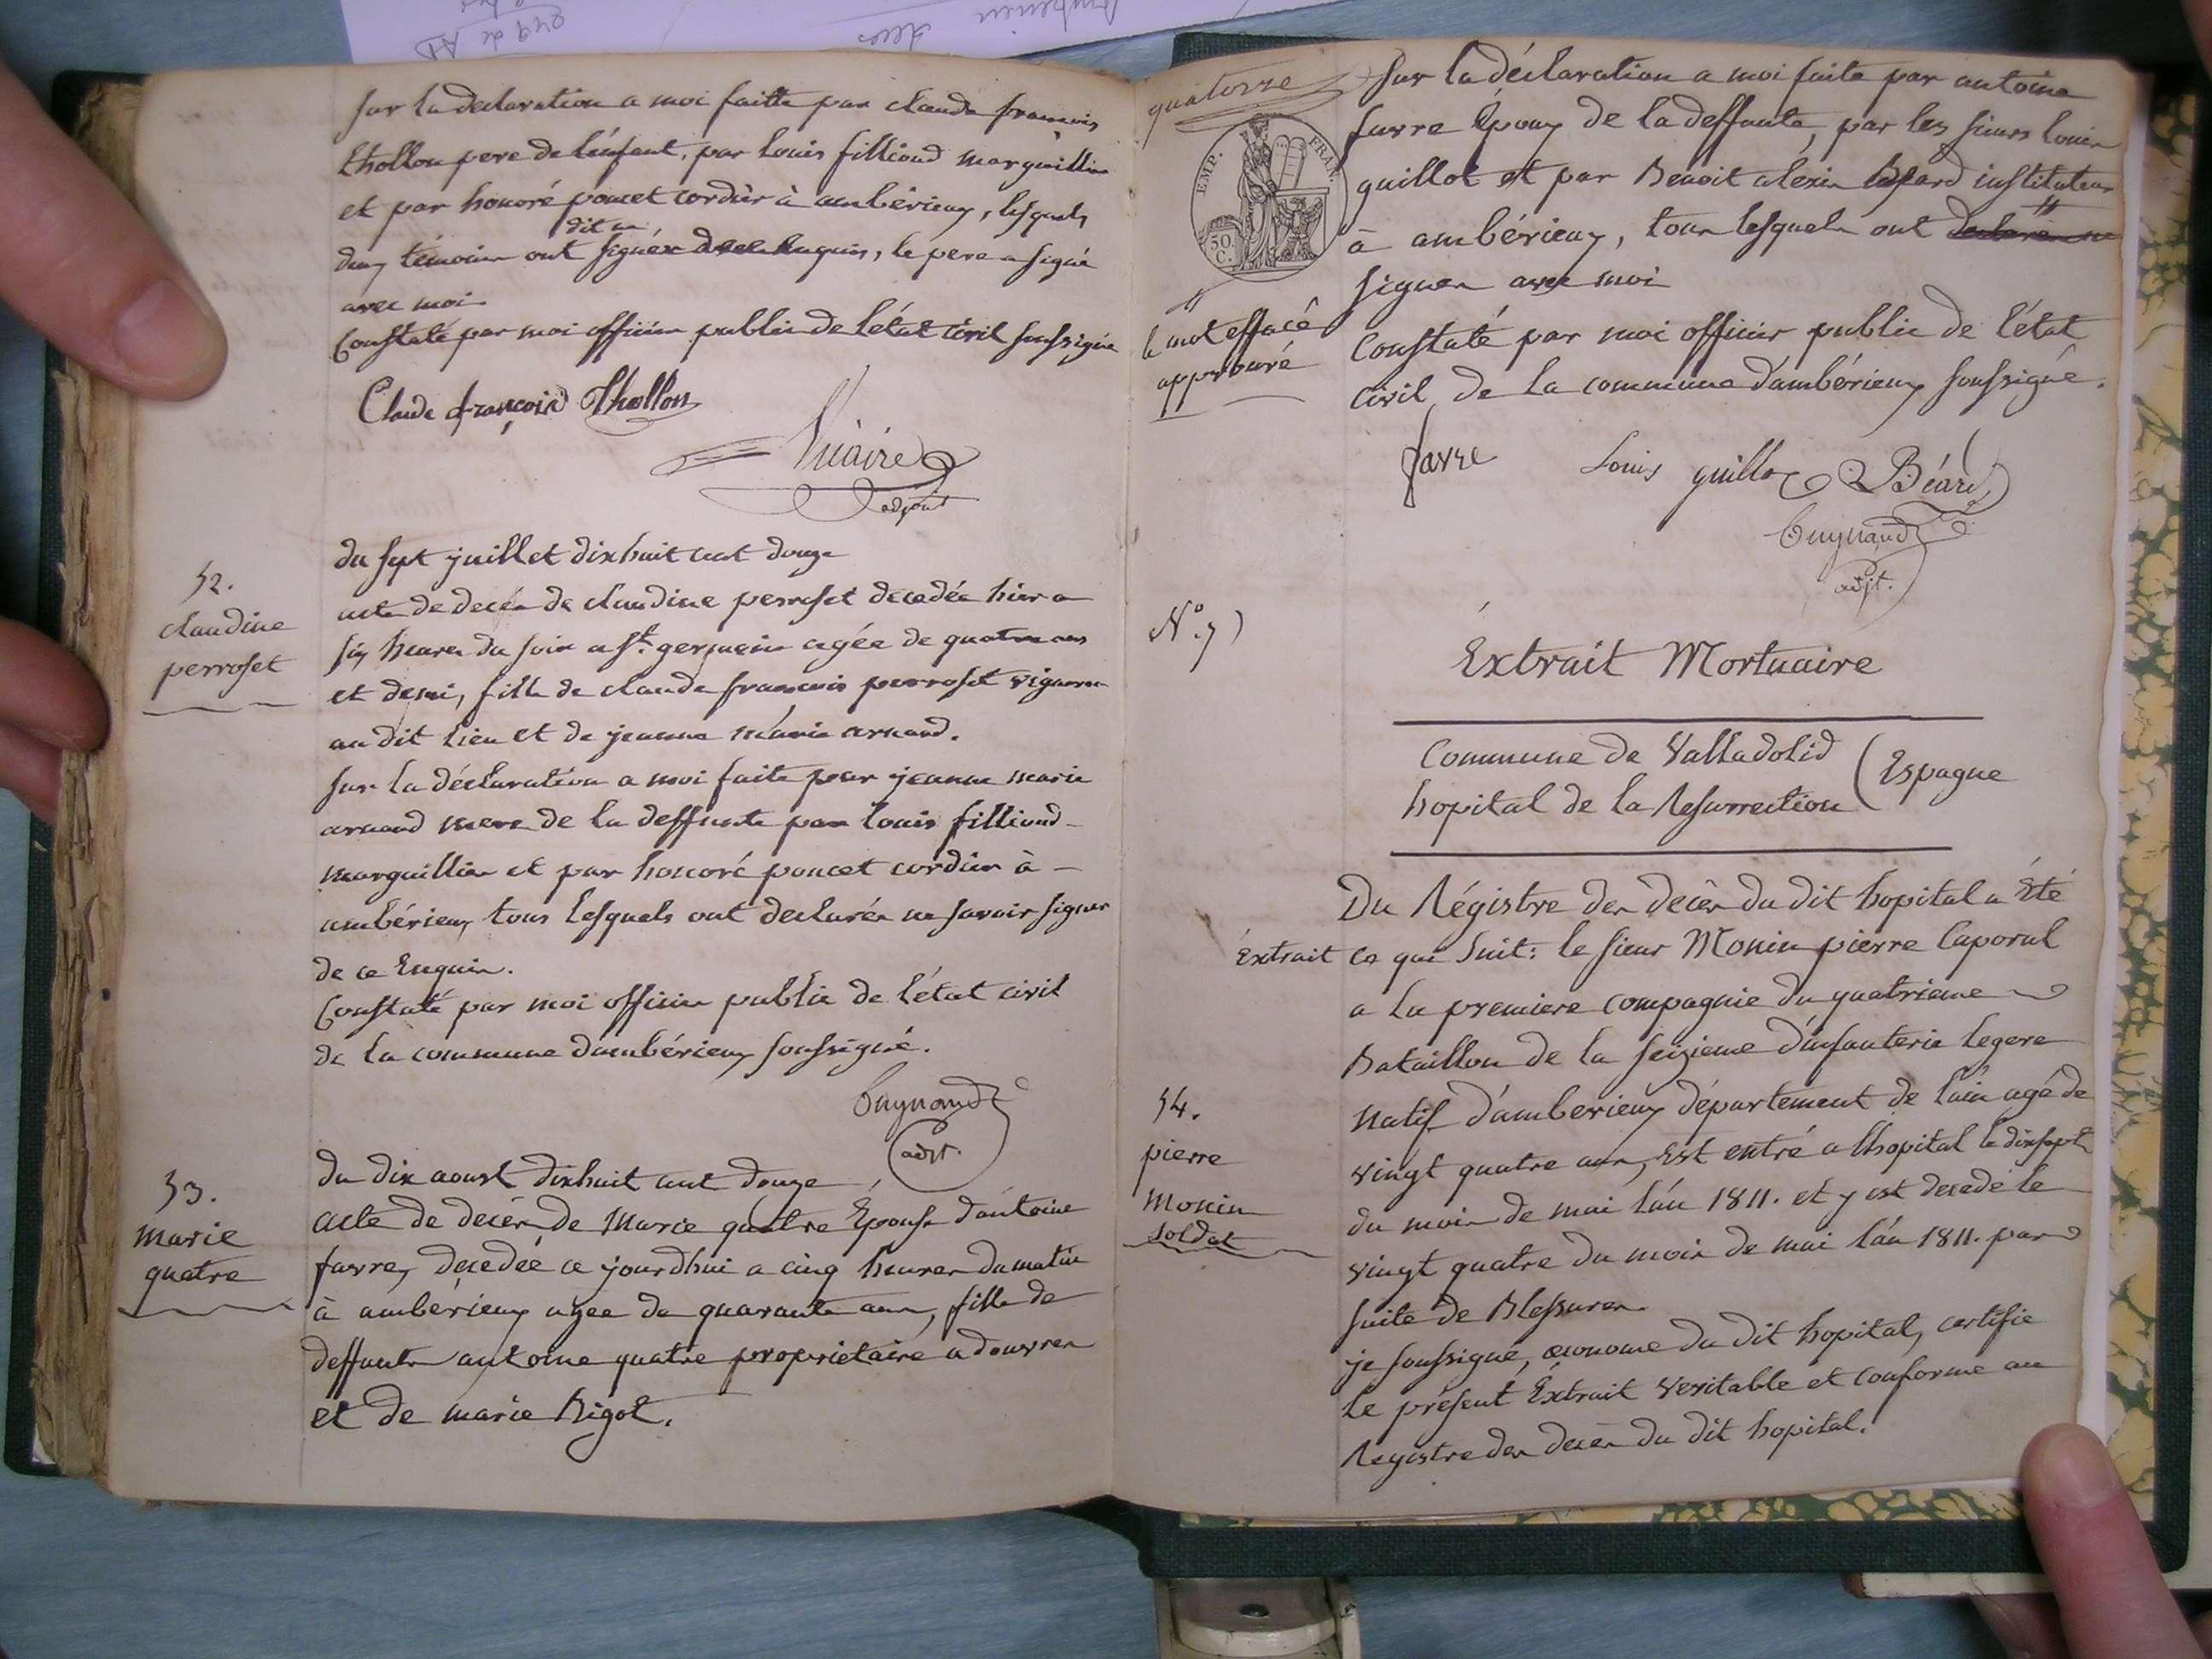 sur la declaration a moi faitte par claude francois
thollon pere de l'enfant, par louis filliond marguillier
et par honoré poncet cordier à ambérieux, lesquels
deux témoins ont dit ne signer de ce enquis, le pere a signé
avec moi
Constaté par moi officier public de l'état civil soussigné
Claude françois Thollon
adjoint
52.
claudine
perroset
du sept juillet dix huit cent douze
acte de decés de claudine perroset decedée hier a
six heures du soir a St. germain agée de quatre ans
et demi, fille de claude francois perroset vigneron
au dit lieu et de jeanne marie arnaud.
sur la déclaration a moi faite par jeanne marie
arnaud mere de la deffunte par louis filliond
marguillier et par honoré poncet cordier à
ambérieux tous lesquels ont declarés ne savoir signer
de ce Enquis.
Constaté par moi officier public de l'état civil
de la commune d'ambérieux soussigné.
adjt.
53.
marie
quatre
du dix aoust dix huit cent douze
acte de decés de Marie quatre Épouse d'antoine
favre, decedée ce jourdhui a cinq heures du matin
à ambérieux agee de quarante ans, fille de
deffunts antoine quatre propriétaire a douvres
et de marie Bigot.
quatorze
EMP. FRAN.
50. C.
Sur la déclaration a moi faite par antoine
favre Epoux de la deffunte, par les sieurs louis
guillot et par Benoit alexis Béard instituteur
à ambérieux, tous lesquels ont declarés ne
signer avec moi
le mot effacé
approuvé
Constaté par moi officier public de l'état
civil de la commune d'ambérieux soussigné.
favre Louis guillot Béard
adjt.
N° 7)
Extrait Mortuaire
Commune de Valladolid
hopital de la Resurrection ( Espagne
Du Régistre des decès du dit hopital a Eté
Extrait ce que suit: le sieur Monin pierre Caporal
a la premiere compagnie du quatrieme
Bataillon de la seizieme d'infanterie legere
54.
pierre
Monin
soldat
natif d'amberieux département de l'ain agé de
vingt quatre ans, Est entré a lhopital le dix sept
du mois de mai l'an 1811. et y est decedé le
vingt quatre du mois de mai l'an 1811. par
suite de Blessures.
je soussigné, œconome du dit hopital, certifie
le présent Extrait veritable et conforme au
Registre des decès du dit hopital.